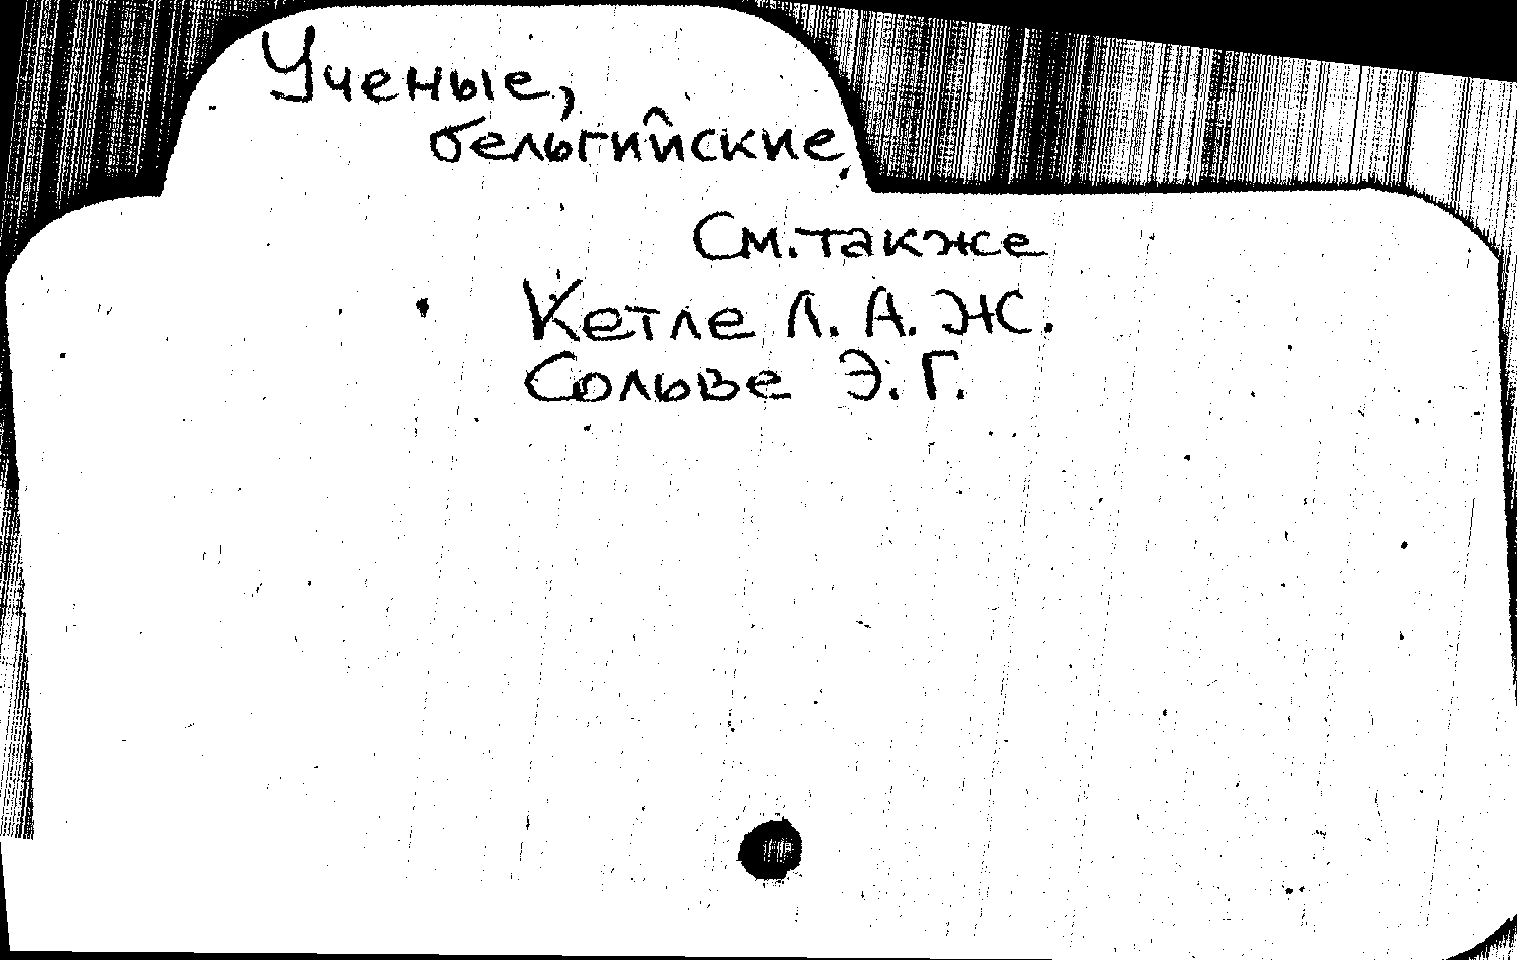 Ученые,
бельгийские.
См. также
Кетле Л. А. Ж.
Сольве Э. Г.